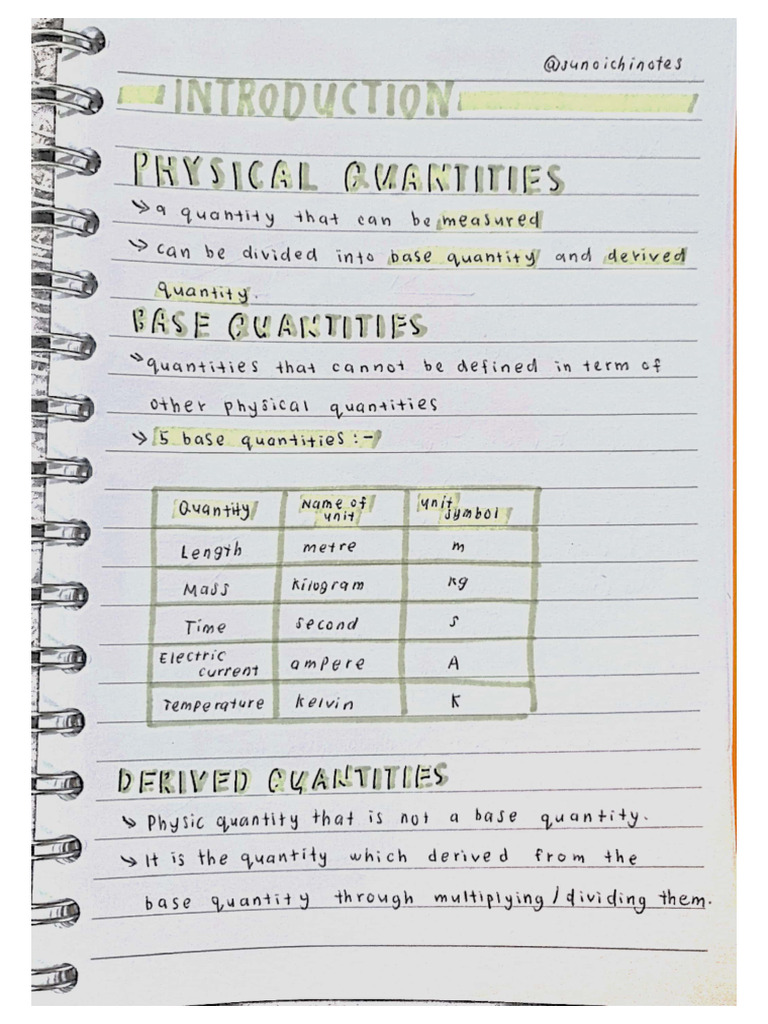 @sunoichinotes
INTRODUCTION
PHYSICAL QUANTITIES
→ a quantity that can be measured
→ can be divided into base quantity and derived
quantity.
BASE QUANTITIES
→ quantities that cannot be defined in term of
other physical quantities
→ 5 base quantities :-
Quantity Name of unit unit symbol
Length metre m
Mass kilogram kg
Time second s
Electric current ampere A
Temperature kelvin K
DERIVED QUANTITIES
→ Physic quantity that is not a base quantity.
→ It is the quantity which derived from the
base quantity through multiplying/dividing them.